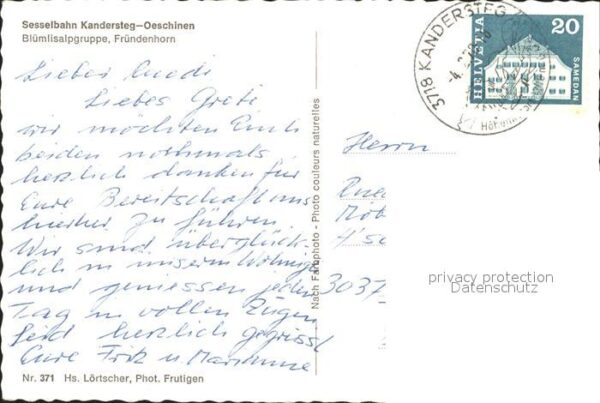 Sesselbahn Kandersteg—Oeschinen
Blümlisalpgruppe, Fründenhorn
Lieber Ruedi
Liebes Grete
wir möchten Euch
beiden nochmals
herzlich danken für
Eure Bereitschaft uns
hierher zu führen.
Wir sind überglück-
lich in unserm Wohnige
und geniessen jeden
Tag in vollen Zügen
Seid herzlich gegrüsst
Eure Fritz u Marianne
Nr. 371 Hs. Lörtscher, Phot. Frutigen
Nach Farbphoto - Photo couleurs naturelles
3718 KANDERSTEG
HELVETIA
20
SAMEDAN
Herrn
Rue
Möb
4'sc
3037
privacy protection
Datenschutz